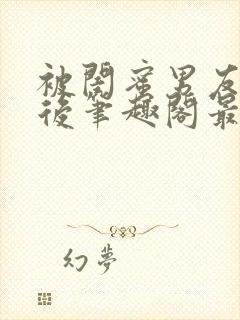 被閣蜜男友
後筆趣閣最
幻夢